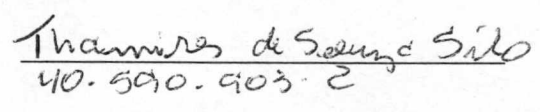 Thamires de Souza Silo
40.590.903.2